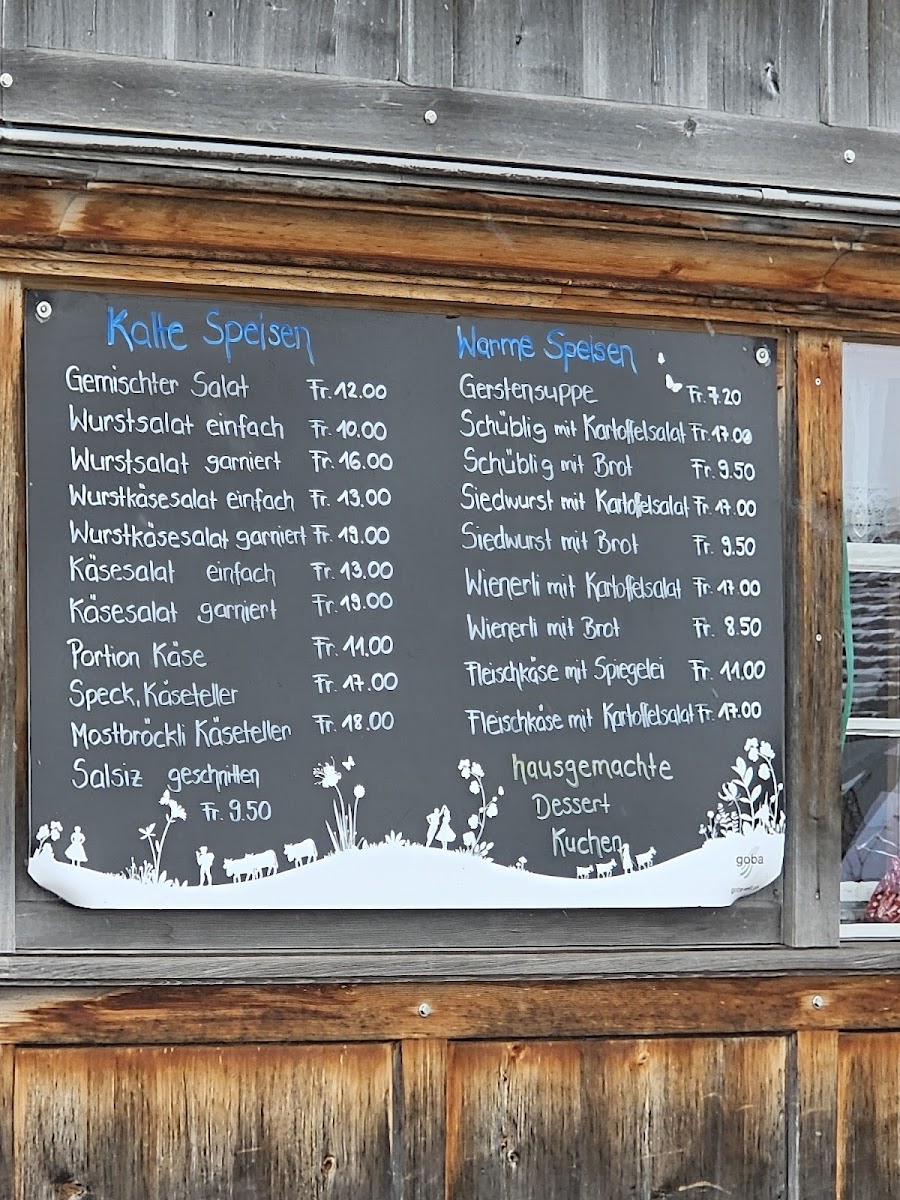 Kalte Speisen
Gemischter Salat Fr. 12.00
Wurstsalat einfach Fr. 10.00
Wurstsalat garniert Fr. 16.00
Wurstkäsesalat einfach Fr. 13.00
Wurstkäsesalat garniert Fr. 19.00
Käsesalat einfach Fr. 13.00
Käsesalat garniert Fr. 19.00
Portion Käse Fr. 11.00
Speck, Käseteller Fr. 17.00
Mostbröckli Käseteller Fr. 18.00
Salsiz geschnitten
Fr. 9.50
Warme Speisen
Gerstensuppe Fr. 7.20
Schüblig mit Kartoffelsalat Fr. 17.00
Schüblig mit Brot Fr. 9.50
Siedwurst mit Kartoffelsalat Fr. 17.00
Siedwurst mit Brot Fr. 9.50
Wienerli mit Kartoffelsalat Fr. 17.00
Wienerli mit Brot Fr. 8.50
Fleischkäse mit Spiegelei Fr. 11.00
Fleischkäse mit Kartoffelsalat Fr. 17.00
hausgemachte
Dessert
Kuchen
goba